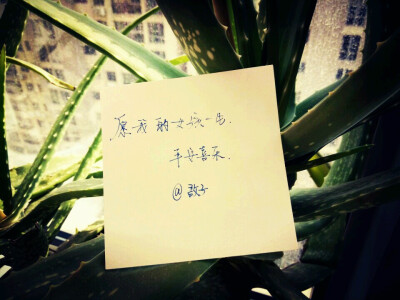 愿我的女孩一生.
平安喜乐.
@敌子